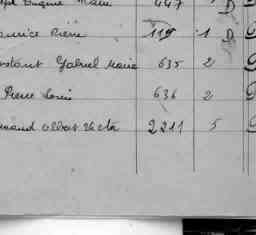 Eugène Marie 447 D
Maurice Pierre 119 1 D
Constant Gabriel Marie 635 2
Pierre Louis 636 2
Armand Albert Victor 2211 5